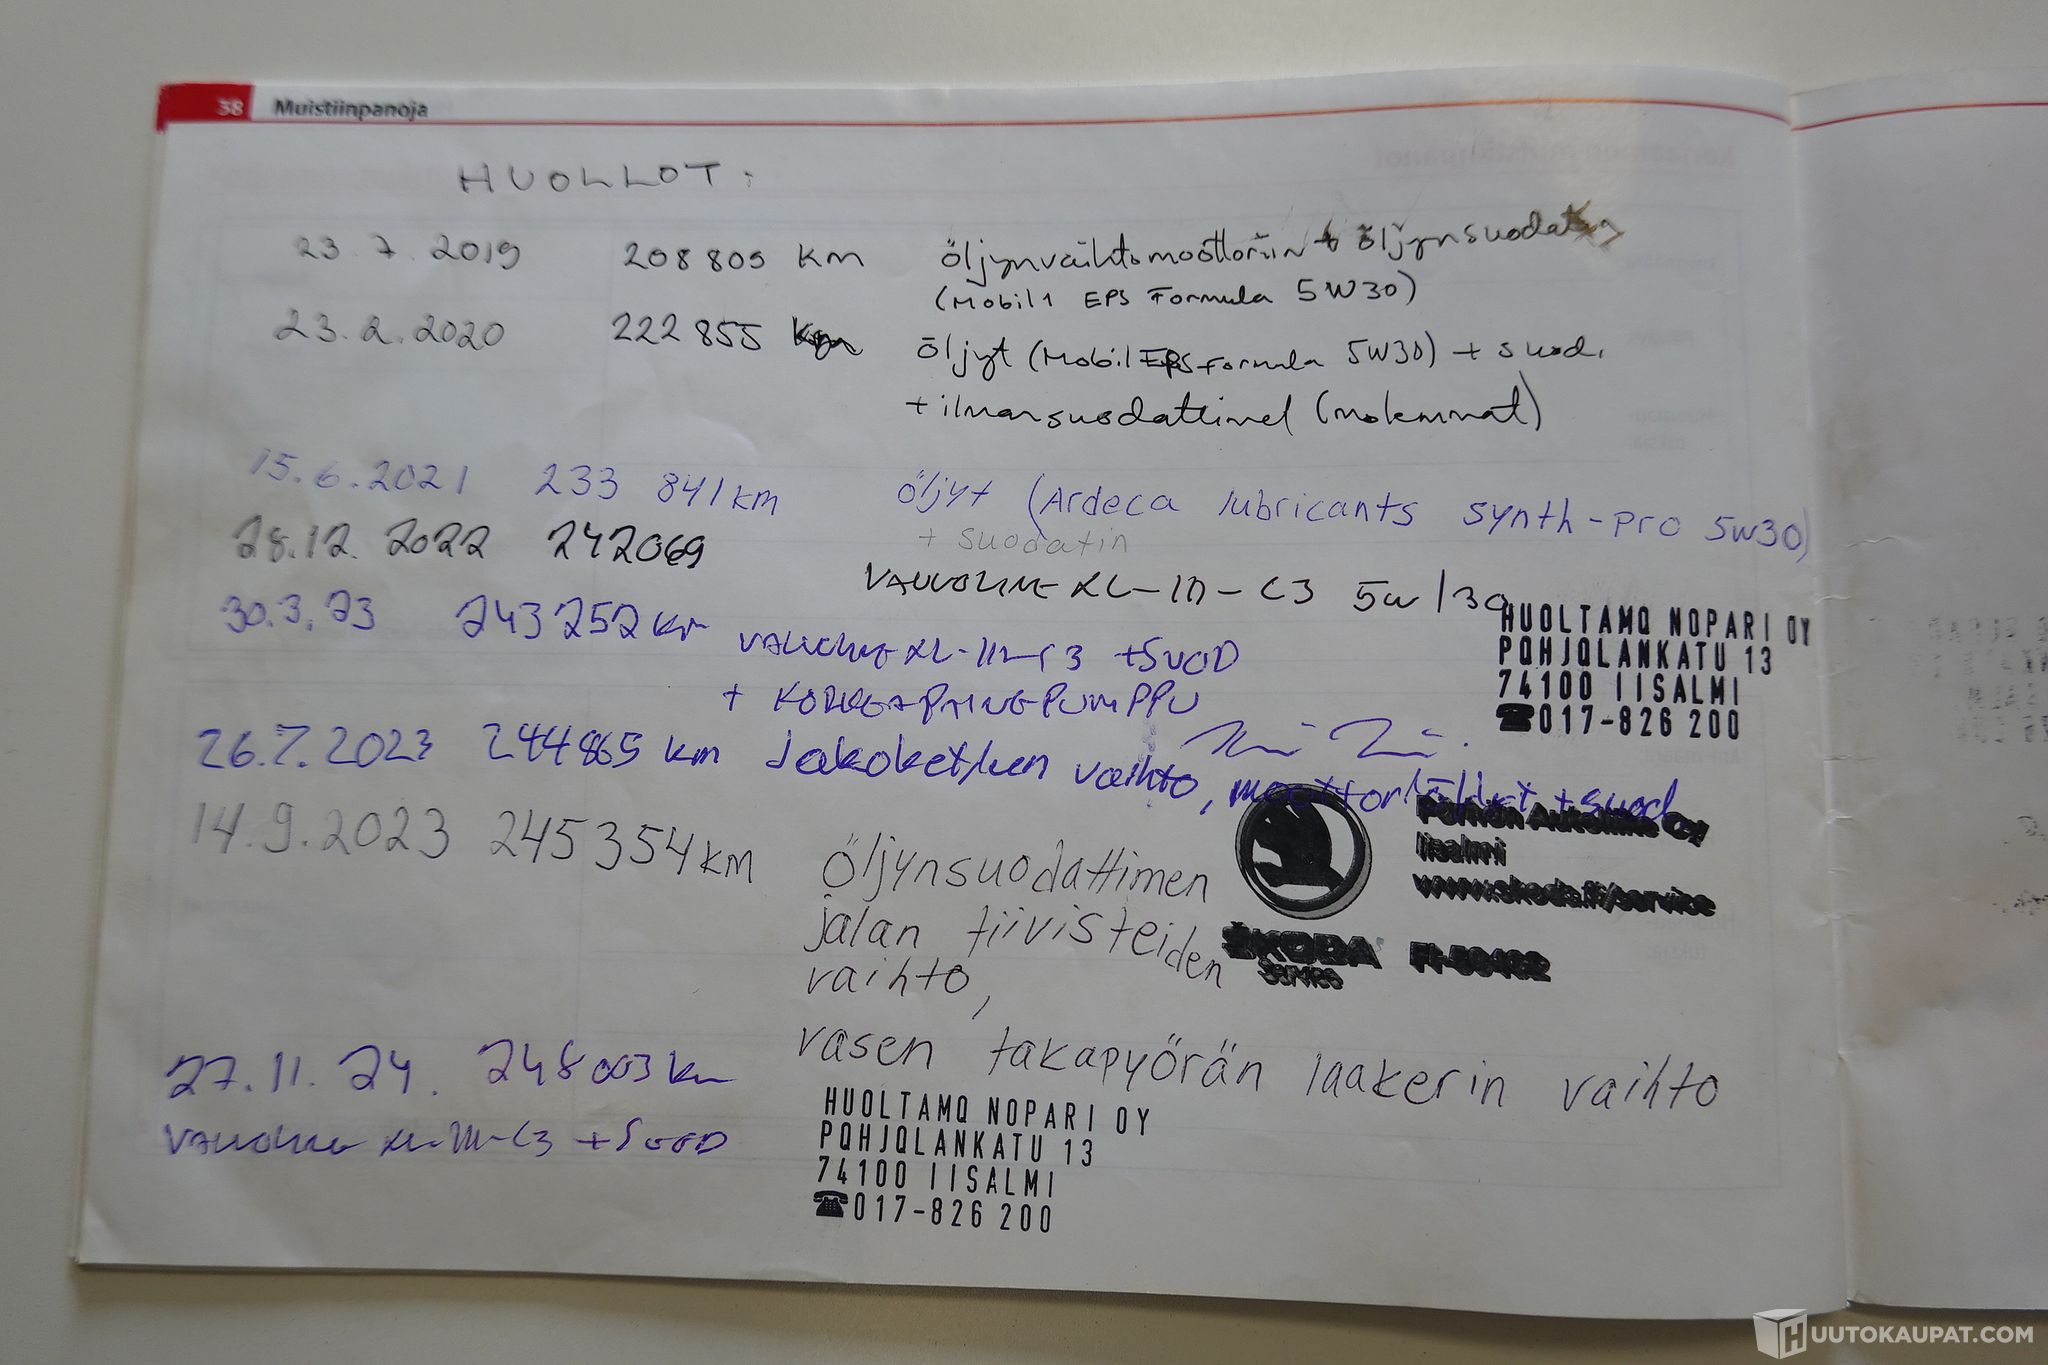 38 Muistiinpanoja
HUOLLOT:
23.7.2019 208805 km öljynvaihto moottoriin + öljynsuodatin
(Mobil1 EPS Formula 5W30)
23.2.2020 222855 km öljyt (Mobil EPS Formula 5W30) + suod.
+ ilmansuodattimet (molemmat)
15.6.2021 233 841 km öljyt (Ardeca lubricants synth-pro 5w30)
+ suodatin
28.12.2022 242069
VALVOLINE XL-III-C3 5W/30
30.3.23 243252 km VALVOLINE XL-III-C3 +SUOD
+ KORKEAPAINEPUMPPU
HUOLTAMO NOPARI OY
POHJOLANKATU 13
74100 IISALMI
☎017-826 200
26.7.2023 244865 km Jakoketjun vaihto, moottoriöljyt + suod.
14.9.2023 245354 km öljynsuodattimen
jalan tiivisteiden
vaihto,
vasen takapyörän laakerin vaihto
Autoliike Oy
Iisalmi
www.skoda.fi/service
ŠKODA
Service
27.11.24. 248003 km
VALVOLINE XL-III-C3 + SUOD
HUOLTAMO NOPARI OY
POHJOLANKATU 13
74100 IISALMI
☎017-826 200
HUUTOKAUPAT.COM